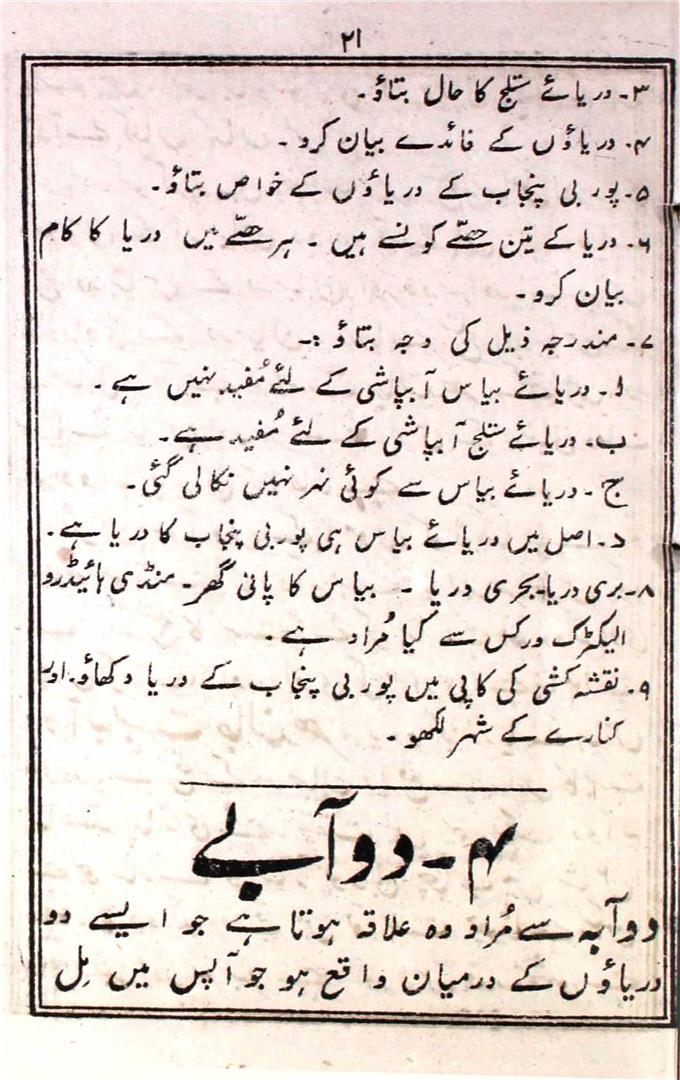 ۲۱
۳۔ دریائے ستلج کا حال بتاؤ۔
۴۔ دریاؤں کے فائدے بیان کرو۔
۵۔ پوربی پنجاب کے دریاؤں کے خواص بتاؤ۔
۶۔ دریا کے تین حصّے کونسے ہیں ۔ ہر حصّے میں دریا کا کام
بیان کرو۔
۷۔ مندرجہ ذیل کی وجہ بتاؤ :۔
ا۔ دریائے بیاس آبپاشی کے لئے مُفید نہیں ہے۔
ب۔ دریائے ستلج آبپاشی کے لئے مُفید ہے۔
ج ۔ دریائے بیاس سے کوئی نہر نہیں نکالی گئی۔
د۔ اصل میں دریائے بیاس ہی پوربی پنجاب کا دریا ہے۔
۸۔ بری دریا۔ بحری دریا ۔ بیاس کا پانی گھر۔ منڈی ہائیڈرو
الیکٹرک ورکس سے کیا مُراد ہے۔
۹۔ نقشہ کشی کی کاپی میں پوربی پنجاب کے دریا دکھاؤ۔ اور
کنارے کے شہر لکھو۔
۴۔ دوآبے
دوآبہ سے مُراد وہ علاقہ ہوتا ہے جو ایسے دو
دریاؤں کے درمیان واقع ہو جو آپس میں مِل